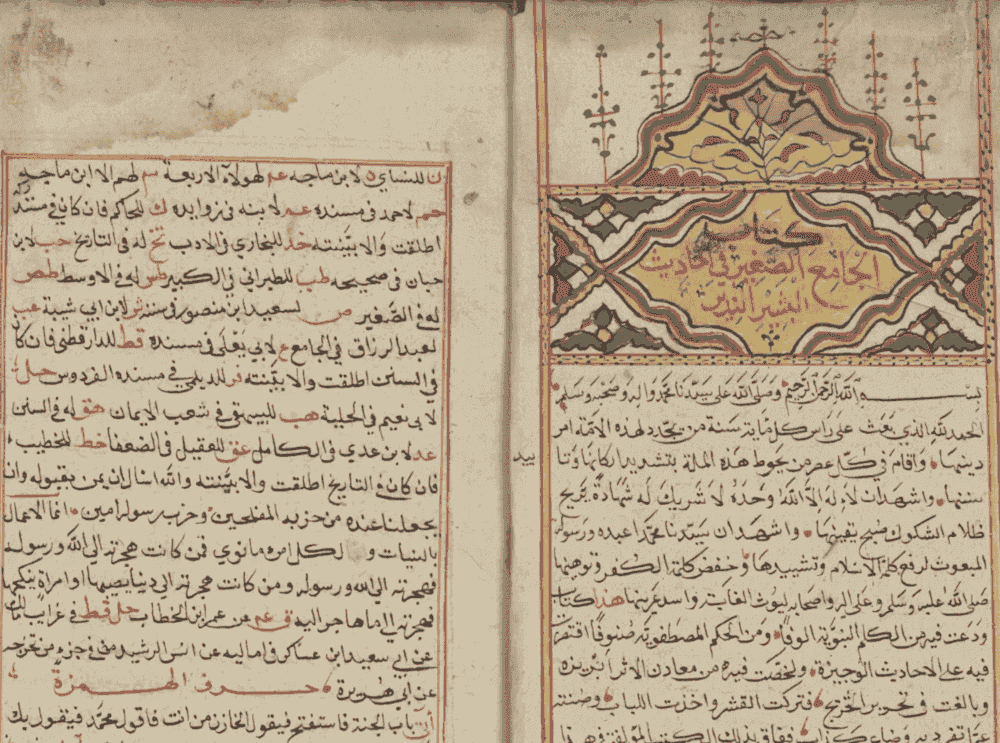 كتاب
الجامع الصغير في احاديث
البشير النذير
بسم الله الرحمن الرحيم وصلى الله على سيدنا محمد واله وصحبه وسلم
الحمد لله الذي بعث على راس كل ماية سنة من يجدد لهذه الامة امر
دينها واقام في كل عصر من يحوط هذه الملة بتشييد اركانها وتا
ييد
سننها واشهد ان لا اله الا الله وحده لا شريك له شهادة يزيح
ظلام الشكوك صبح يقينها واشهد ان سيدنا محمدا عبده ورسوله
المبعوث لرفع كلمة الاسلام وتشييدها وخفض كلمة الكفر وتوهينها
صلى الله عليه وسلم وعلى اله واصحابه ليوث الغابة واسد عرينها هذا كتاب
ودعت فيه من الكلم النبوية الوفا ومن الحكم المصطفوية صنوفا اقتصرت
فيه على الاحاديث الوجيزة ولخصت فيه من معادن الاثر ابريزه
وبالغت في تحرير التخريج فتركت القشر واخذت اللباب وصنته
عما تفرد به وضاع ففاق بذلك الكتب المؤلفة
ن للنساي ه لابن ماجه عه لهولاء الاربعة سم لهم الا ابن ماجه
حم لاحمد في مسنده عم لابنه في زوايده ك للحاكم فان كان في مستدركه
اطلقت والا بينته خد للبخاري في الادب تخ له في التاريخ حب لابن
حبان في صحيحه طب للطبراني في الكبير طس له في الاوسط طص
له في الصغير ص لسعيد ابن منصور في سننه ش لابن ابي شيبة عب
لعبد الرزاق في الجامع ع لابي يعلى في مسنده قط للدارقطني فان كان
في السنن اطلقت والا بينته فر للديلمي في مسند الفردوس حل
لابي نعيم في الحلية هب للبيهقي في شعب الايمان هق له في السنن
عد لابن عدي في الكامل عق للعقيلي في الضعفا خط للخطيب
فان كان في التاريخ اطلقت والا بينته والله اسال ان يمن بقبوله وان
يجعلنا عنده من حزبه المفلحين وحزب رسوله امين انما الاعمال
بالنيات و لكل امرء ما نوي فمن كانت هجرته الى الله ورسوله
فهجرته الى الله ورسوله ومن كانت هجرته الى دنيا يصيبها او امراة ينكحها
فهجرته الى ما هاجر اليه ق عه من عمر ابن الخطاب حل قط في غرايب مالك
عن ابي سعيد ابن عساكر في اماليه عن انس الرشيد في جزء من تخريجه
عن ابي هريرة حرف الهمزة
اتي باب الجنة فاستفتح فيقول الخازن من انت فاقول محمد فيقول بك